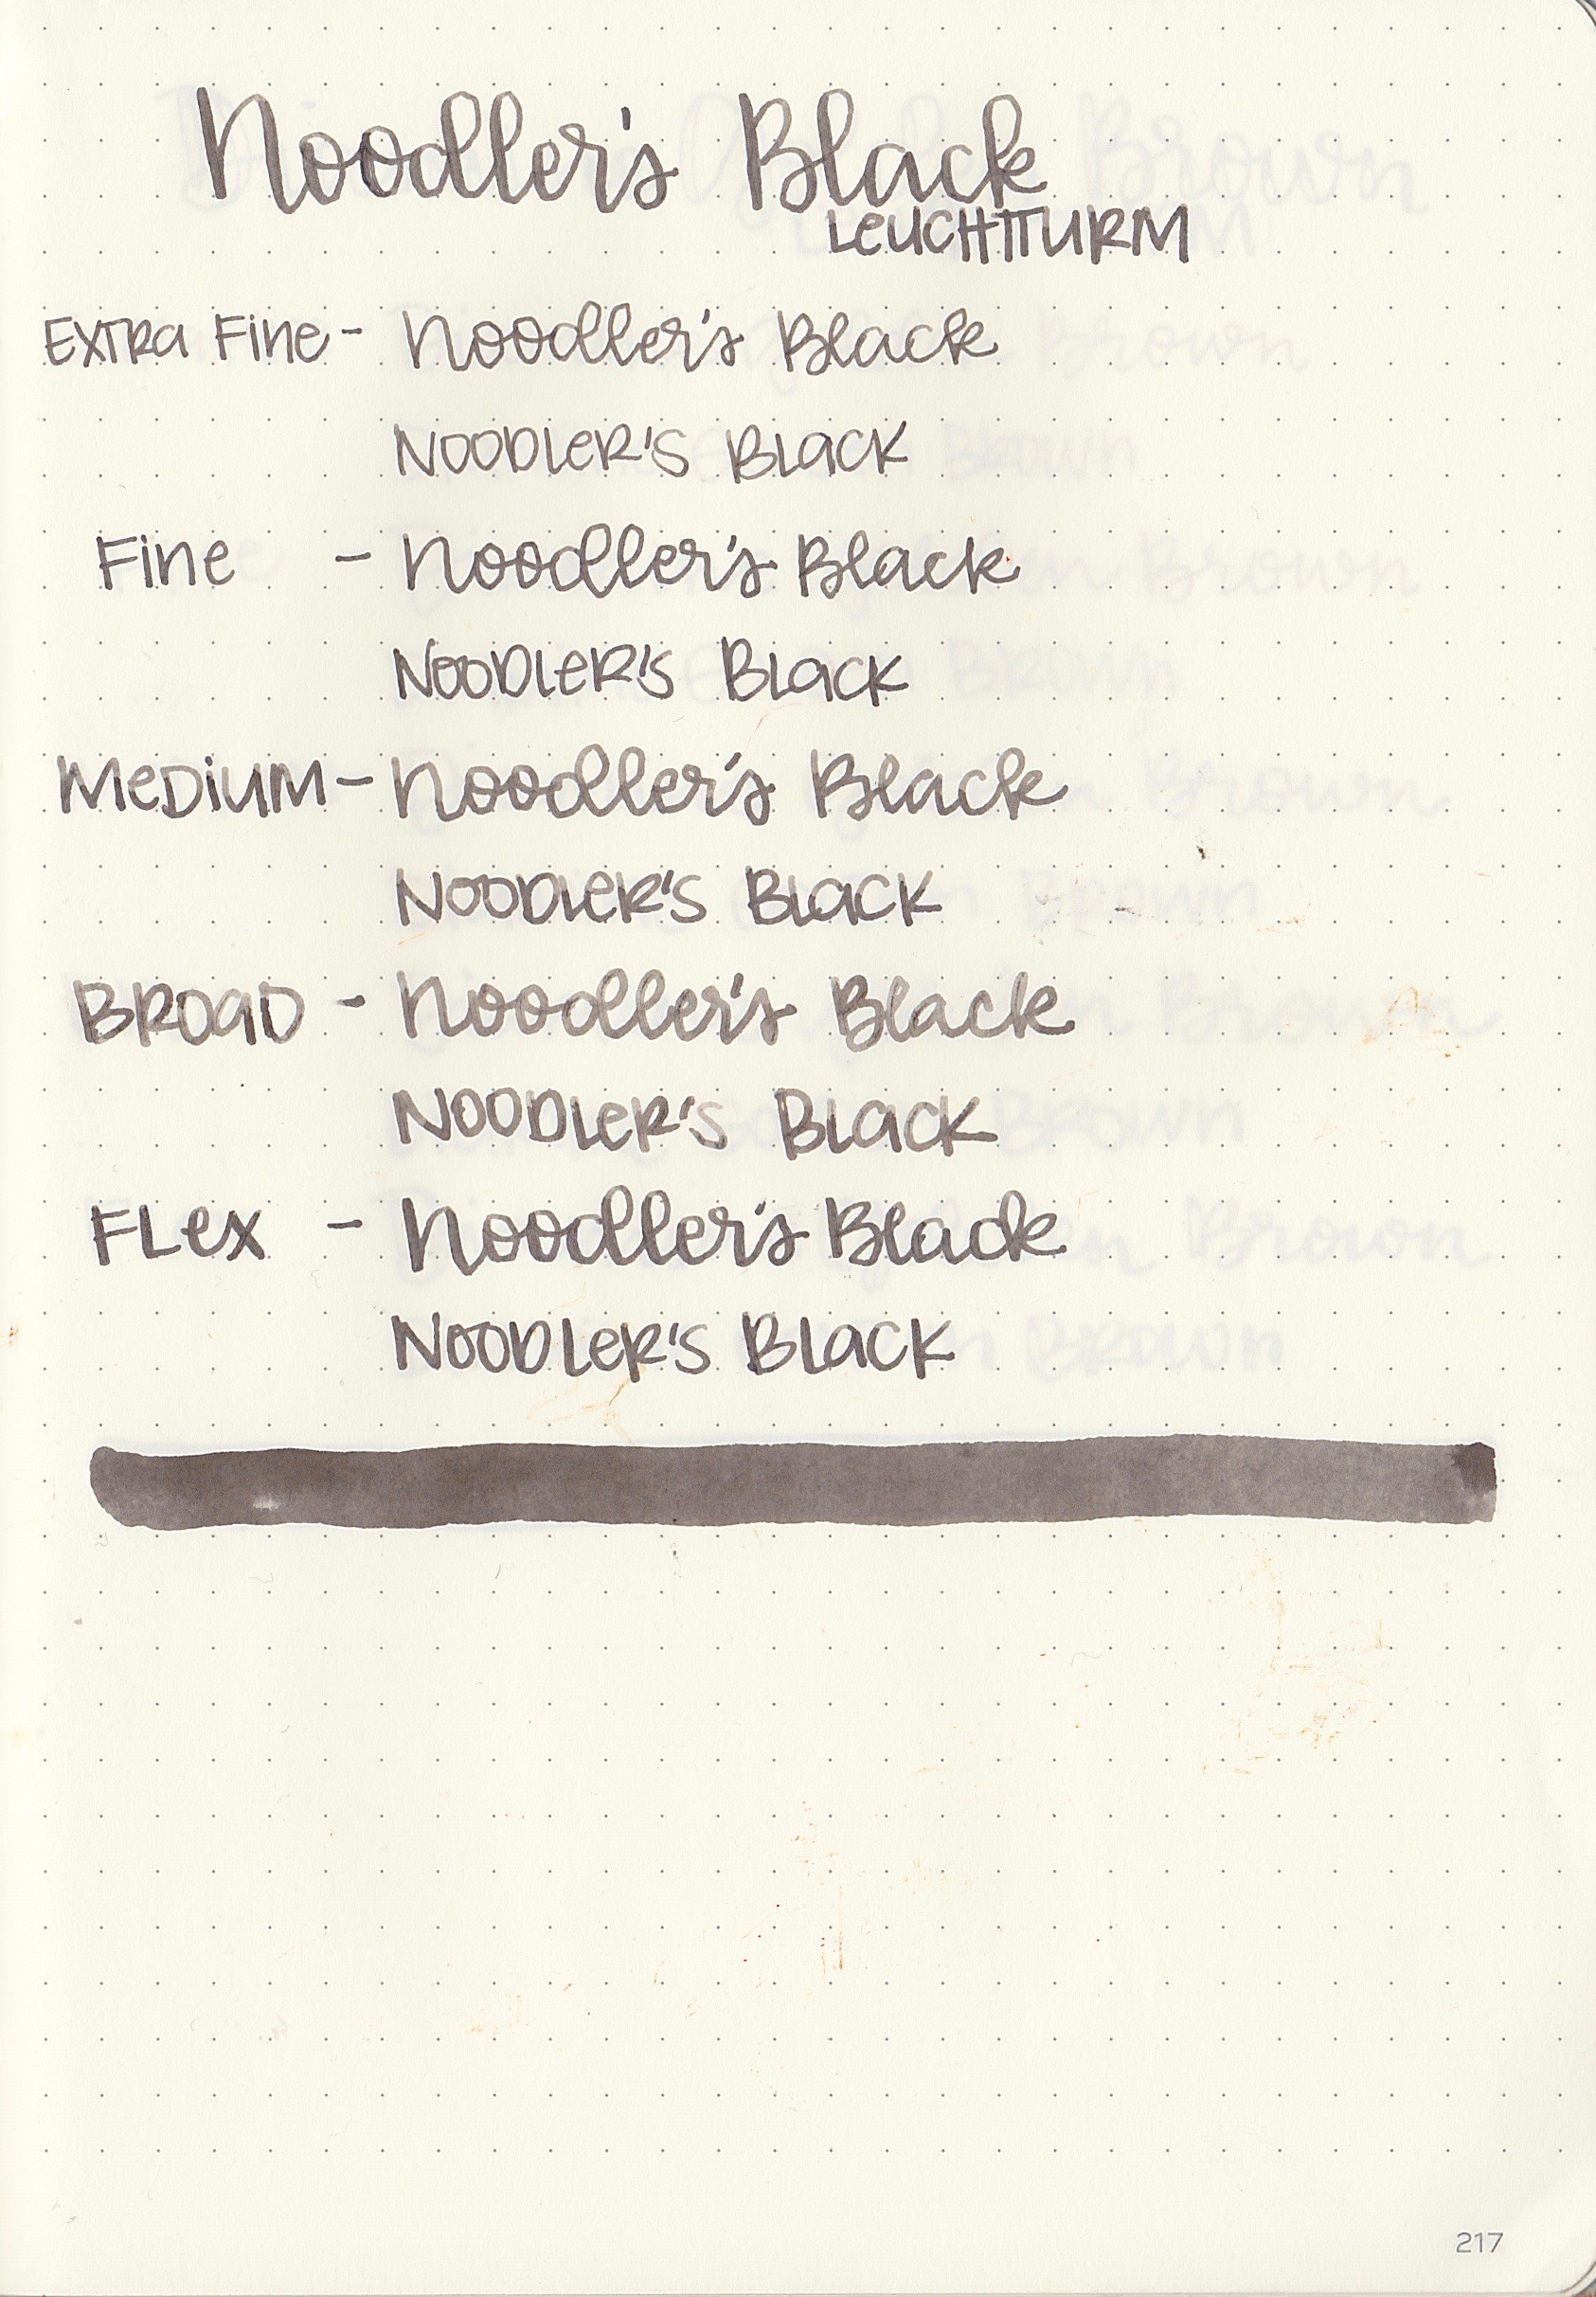 Noodler's Black
LEUCHTTURM
EXTRA Fine - Noodler's Black
NOODLER'S BLACK
Fine - Noodler's Black
NOODLER'S BLACK
MEDIUM - Noodler's Black
NOODLER'S BLACK
BROAD - Noodler's Black
NOODLER'S BLACK
FLEX - Noodler's Black
NOODLER'S BLACK
217